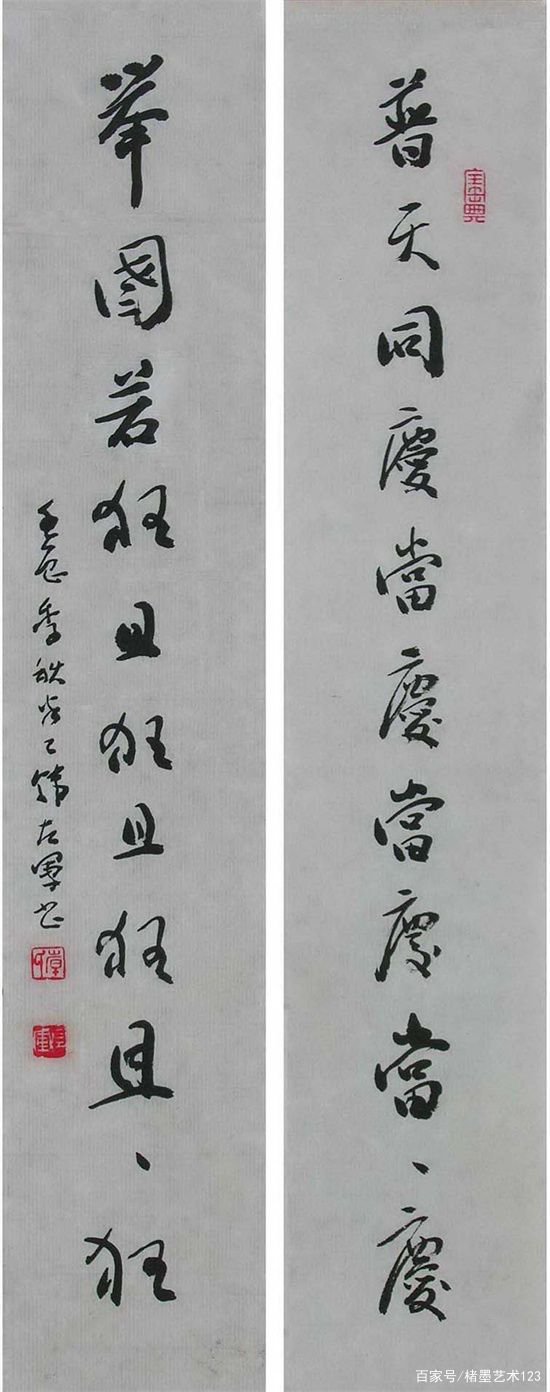 普天同慶當慶當慶當、慶
舉國若狂且狂且狂且、狂
壬辰季秋韓左軍書
百家号/楮墨艺术123